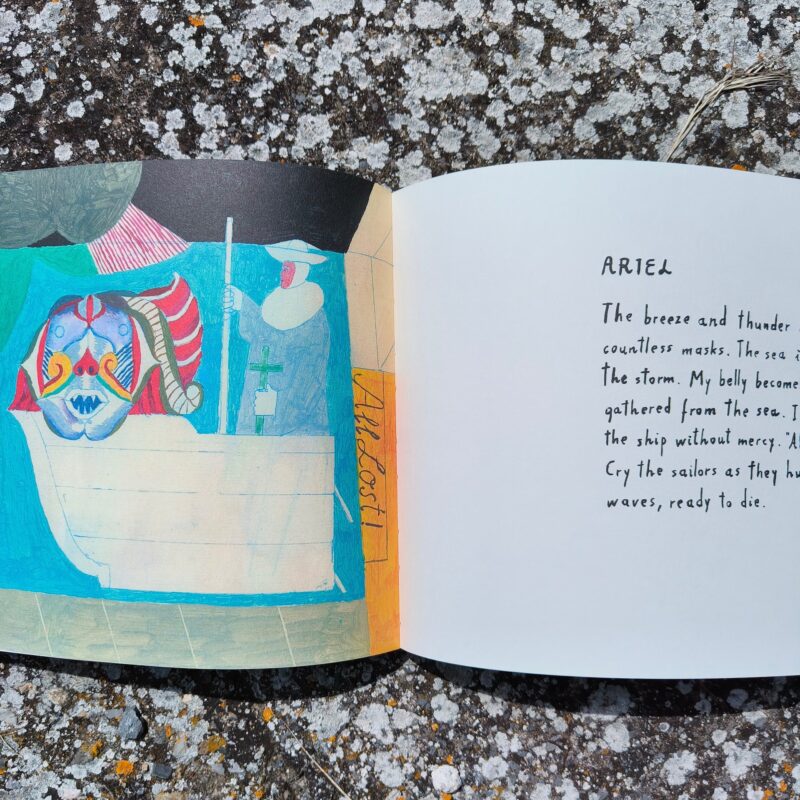 All Lost!
ARIEL
The breeze and thunder
countless masks. The sea
the storm. My belly become
gathered from the sea. I
the ship without mercy. "A
Cry the sailors as they hu
waves, ready to die.